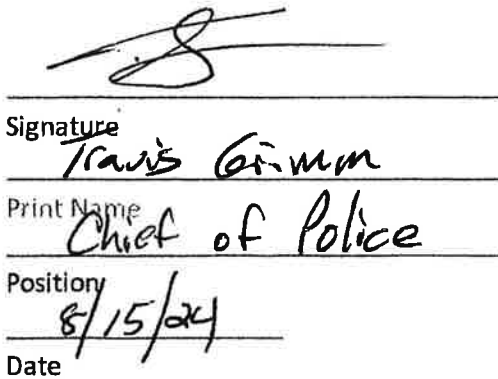 Signature
Travis Grimm
Print Name
Chief of Police
Position
8/15/24
Date